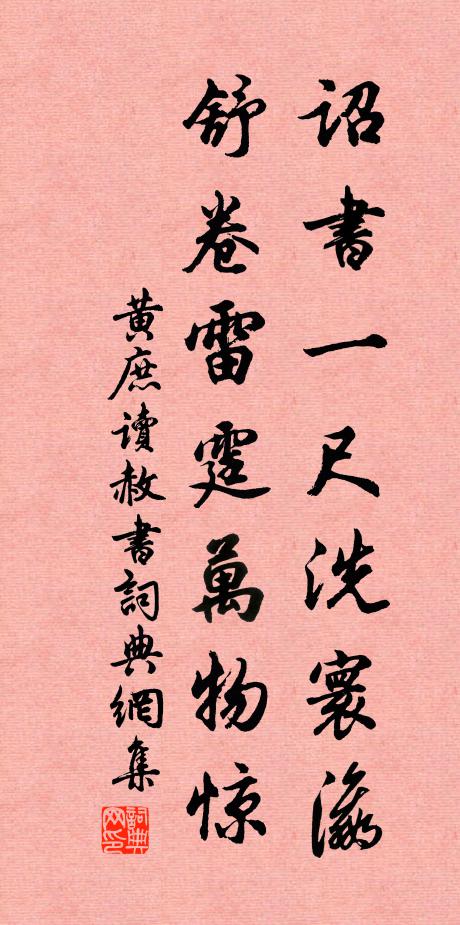 詔書一尺洗寰瀛
舒卷雷霆萬物惊
黃庶讀赦書詞典網集
詞典
网印